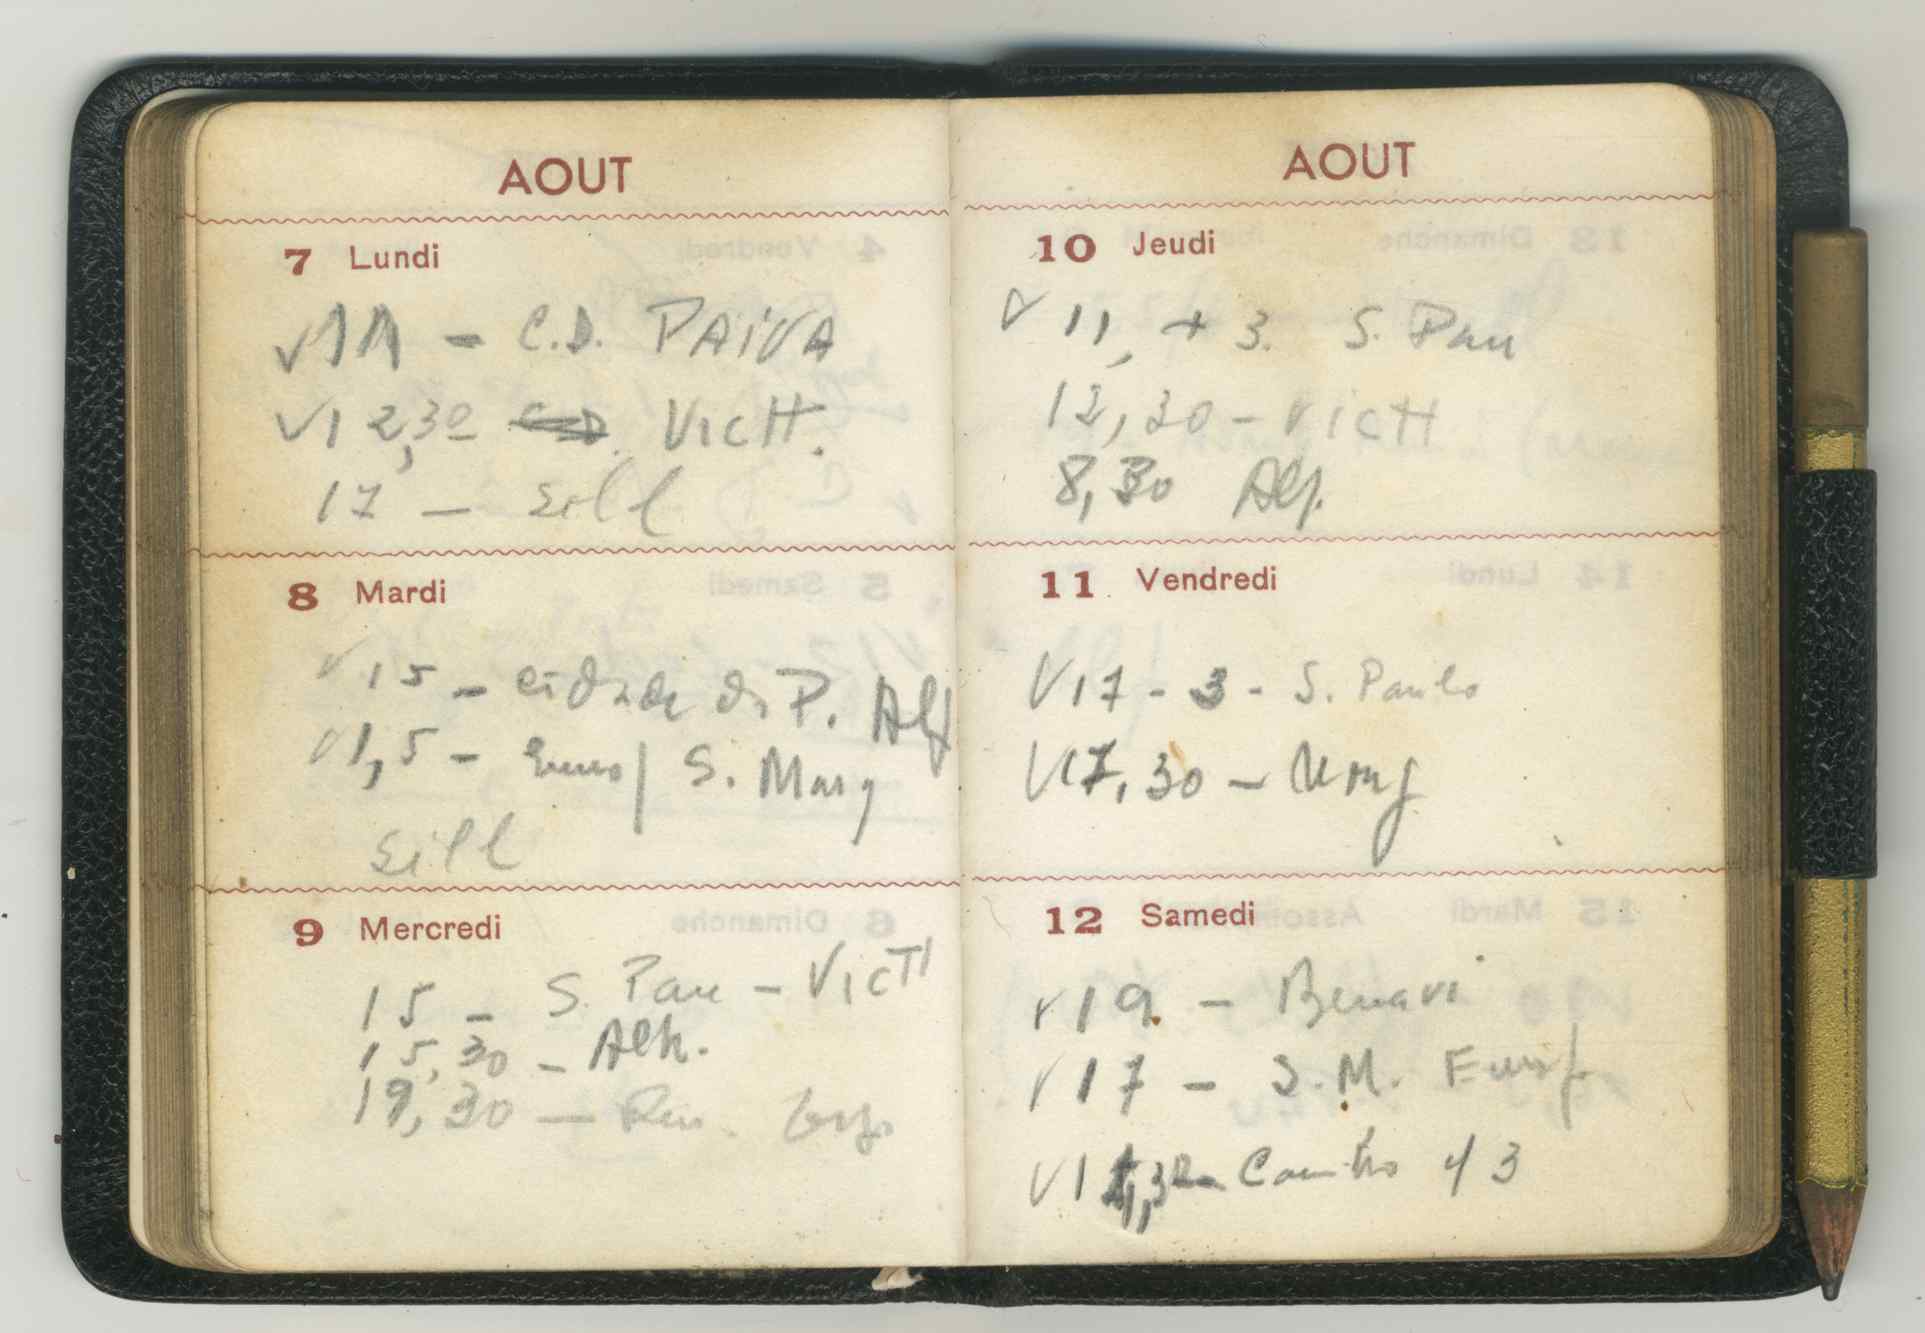 AOUT
7 Lundi
√11 - C.D. PAIVA
√12,30 VICTH.
17 - Sill
8 Mardi
√15 - cidade da P. Alf
√1,5 - S. Marg
Sill
9 Mercredi
15 - S. Pau - VICTH
15,30 -
19,30 -
AOUT
10 Jeudi
√ 11, + 3. S. Pau
12,30 - VICTH
8,30 Alf.
11 Vendredi
√17 - 3 - S. Paulo
√17,30 -
12 Samedi
√19 - Benavi
√17 - S.M.